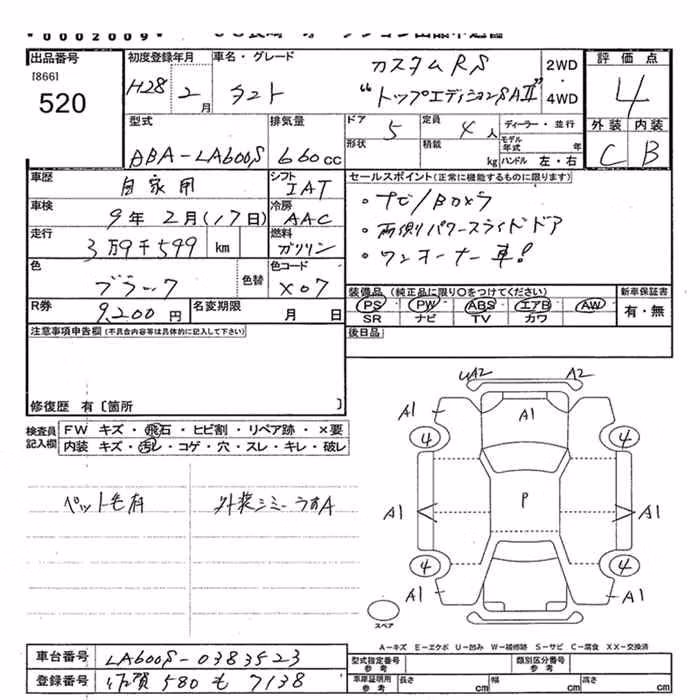 *0002009*
出品番号
[866]
520
初度登録年月
H28 2月
車名・グレード
タント
カスタムRS
"トップエディションSAⅡ"
2WD
・
4WD
評価点
4
外装 内装
C B
型式
ABA-LA600S
排気量
660cc
ドア
5
定員
4人
ディーラー・並行
モデル年式 年
形状
積載 kg
ハンドル 左・右
車歴
自家用
シフト
IAT
車検
9年2月(17日)
冷房
AAC
走行
3万9千599 km
燃料
ガソリン
色
ブラック
色替
色コード
X07
R券
9,200円
名変期限 月 日
セールスポイント(正常に機能するものに限ります)
・ナビ/Bカメラ
・両側パワースライドドア
・ワンオーナー車!
装備品(純正品に限り○をつけてください)
PS PW ABS エアB AW
SR ナビ TV カワ
新車保証書
有・無
後日品
注意事項申告欄(不具合内容等は具体的に記入して下さい)
修復歴 有〔箇所 〕
検査員記入欄
FW キズ・飛石・ヒビ割・リペア跡・×要
内装 キズ・汚レ・コゲ・穴・スレ・キレ・破レ
ペット毛有
外装シミ一うすA
UA2 A2
A1 A1 A1
4 4
A1 P A1
4 4
A1 A1
スペア
A-キズ E-エクボ U-凹み W-補修跡 S-サビ C-腐食 XX-交換済
車台番号
LA600S-0383523
登録番号
佐賀 580 も 7138
型式指定番号
参考
類別区分番号
参考
車庫証明用
参考
長さ cm
幅 cm
高さ cm